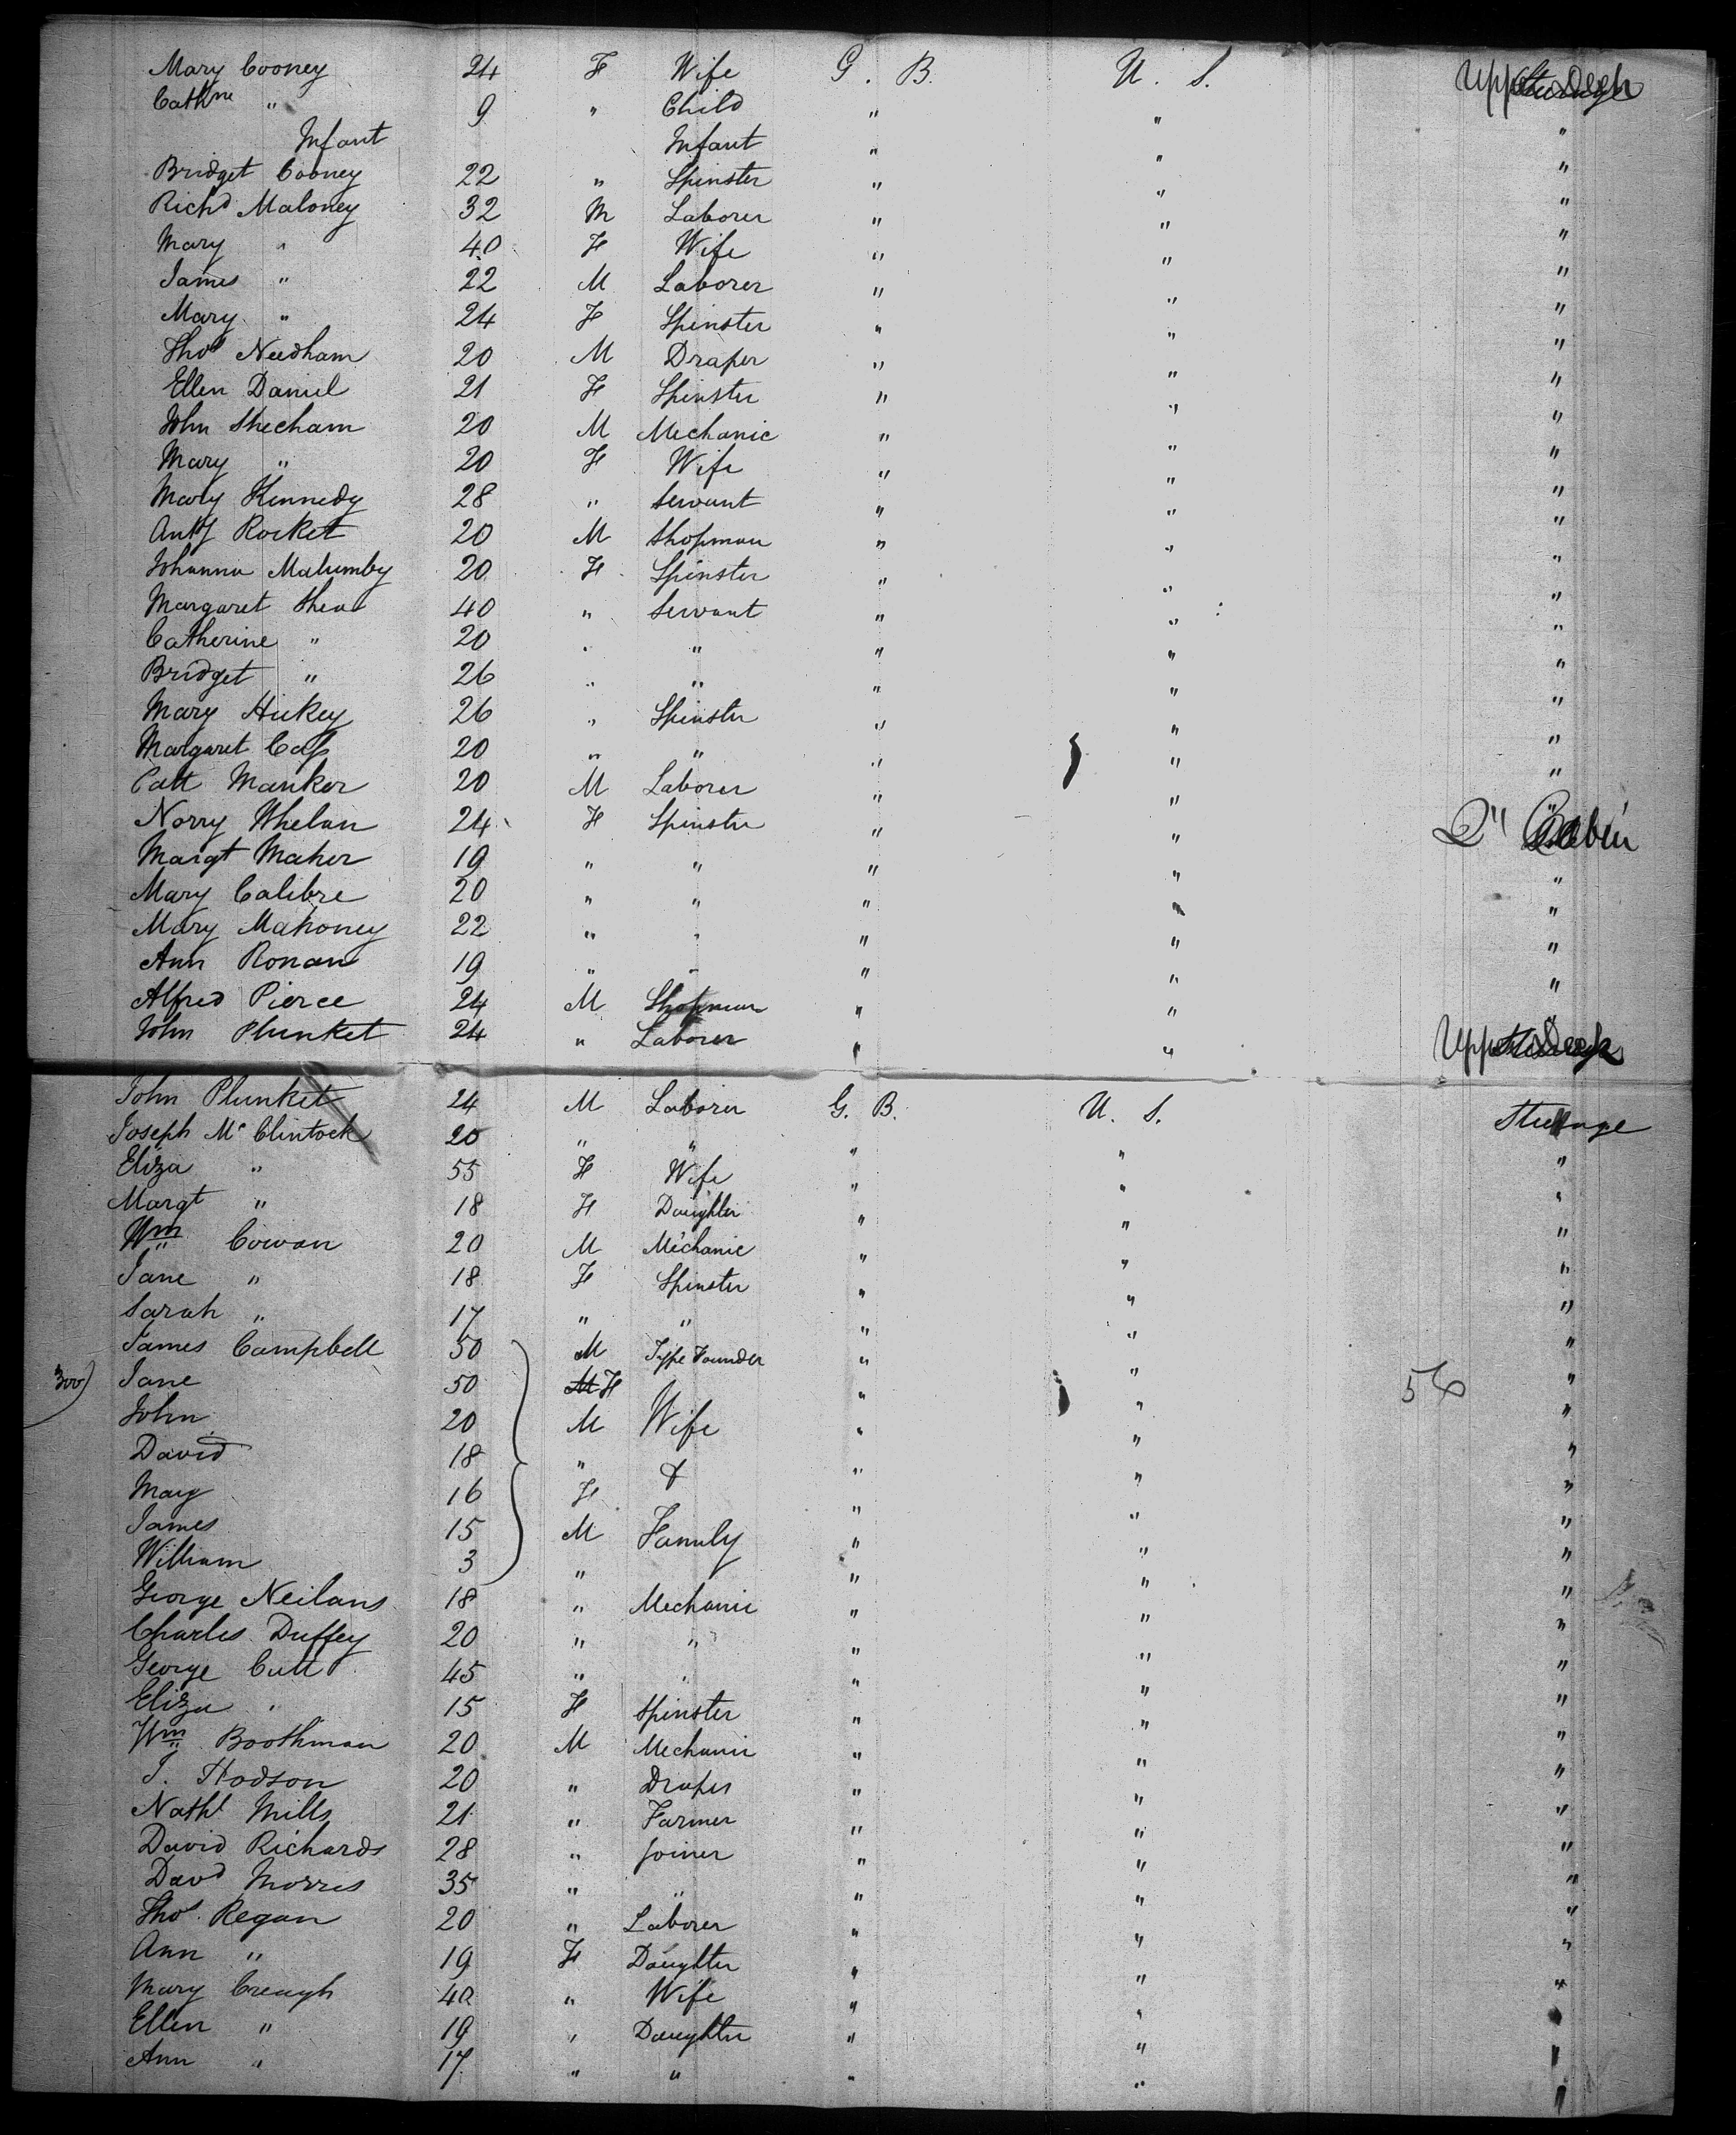 Mary Cooney 24 F Wife G. B. U. S. Upper Deck
Cathne " 9 " Child " " "
Infant Infant " " "
Bridget Cooney 22 " Spinster " " "
Richd Maloney 32 M Laborer " " "
Mary " 40 F Wife " " "
James " 22 M Laborer " " "
Mary " 24 F Spinster " " "
Thos Needham 20 M Draper " " "
Ellen Daniel 21 F Spinster " " "
John Shecham 20 M Mechanic " " "
Mary " 20 F Wife " " "
Mary Kennedy 28 " Servant " " "
Anty Rocket 20 M Shopman " " "
Johanna Malumby 20 F Spinster " " "
Margaret Shea 40 " Servant " " "
Catherine " 20 " " " " "
Bridget " 26 " " " " "
Mary Hickey 26 " Spinster " " "
Margaret Cass 20 " " " " "
Patt Manker 20 M Laborer " " "
Norry Whelan 24 F Spinster " " 2" Cabin
Margt Maher 19 " " " " "
Mary Calibre 20 " " " " "
Mary Mahoney 22 " " " " "
Ann Ronan 19 " " " " "
Alfred Pierce 24 M Shopman " " "
John Plunket 24 " Laborer " " Upper Deck
John Plunket 24 M Laborer G. B. U. S. Steerage
Joseph Mc Clintock 20 " " " " "
Eliza " 55 F Wife " " "
Margt " 18 F Daughter " " "
Wm Cowan 20 M Mechanic " " "
Jane " 18 F Spinster " " "
Sarah " 17 " " " " "
James Campbell 50 M Type Founder " " "
300) Jane 50 M F " " 56 "
John 20 M Wife " " "
David 18 " & " " "
Mary 16 F " " "
James 15 M Family " " "
William 3 " " " "
George Neilans 18 " Mechanic " " "
Charles Duffey 20 " " " " "
George Cutt 45 " " " " "
Eliza " 15 F Spinster " " "
Wm Boothman 20 M Mechanic " " "
J. Hodson 20 " Draper " " "
Nathl Mills 21 " Farmer " " "
David Richards 28 " Joiner " " "
Davd Morris 35 " " " " "
Thos Regan 20 " Laborer " " "
Ann " 19 F Daughter " " "
Mary Creagh 40 " Wife " " "
Ellen " 19 " Daughter " " "
Ann " 17 " " " " "